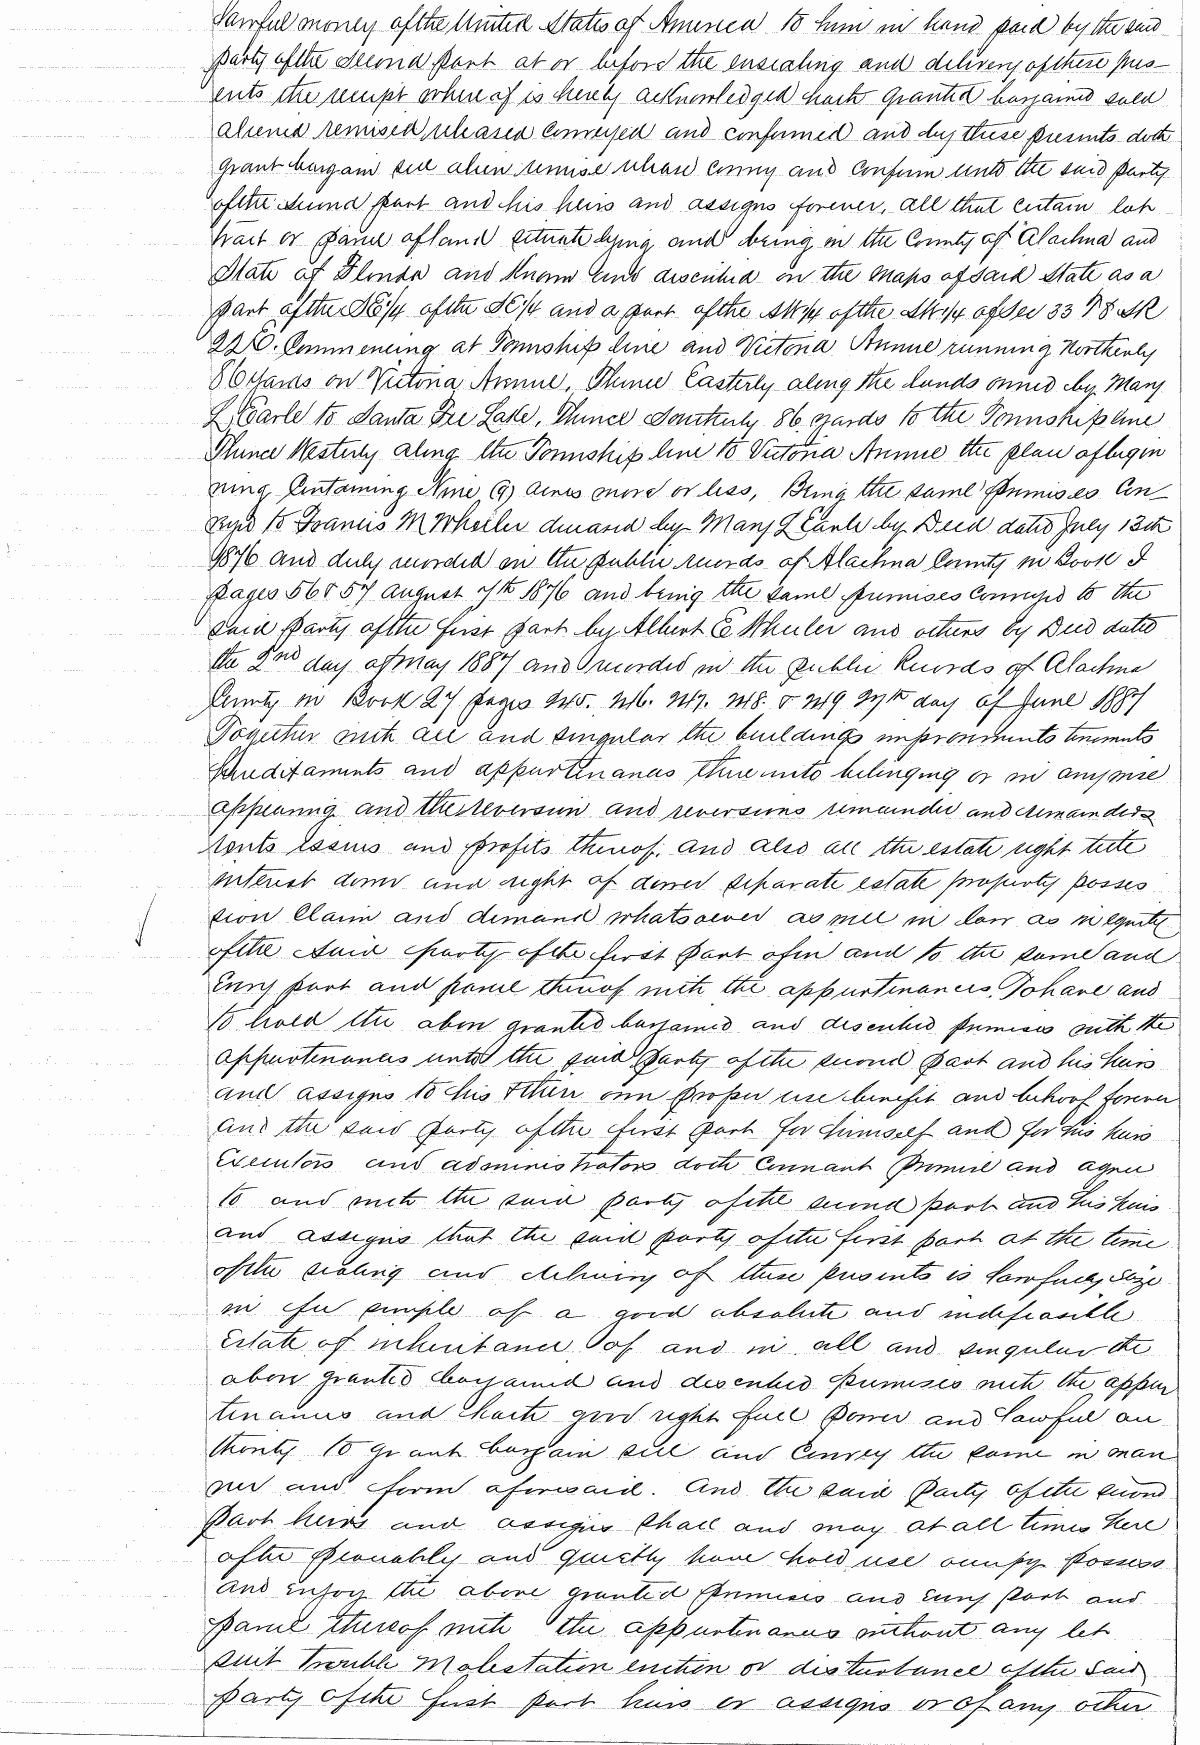 Lawful money of the United States of America to him in hand paid by the said
party of the second part at or before the ensealing and delivery of these pres-
ents the receipt whereof is hereby acknowledged hath granted bargained sold
aliened remised released conveyed and confirmed and by these presents doth
grant bargain sell alien remise release convey and confirm unto the said party
of the second part and his heirs and assigns forever, all that certain lot
tract or parcel of land situate lying and being in the County of Alachua and
State of Florida and known and described on the maps of said State as a
part of the SE 1/4 of the SE 1/4 and a part of the SW 1/4 of the SW 1/4 of Sec 33 T 8 SR
22 E. Commencing at Township line and Victoria Avenue running Northerly
86 yards on Victoria Avenue, Thence Easterly along the lands owned by Mary
L. Earle to Santa Fee Lake, Thence Southerly 86 yards to the Township line
Thence Westerly along the Township line to Victoria Avenue the place of begin
ning Containing Nine (9) acres more or less, Being the same premises Con-
veyed to Francis M Wheeler deceased by Mary L Earle by Deed dated July 13th
1876 and duly recorded in the public records of Alachua County in Book I
pages 56 & 57 August 7th 1876 and being the same premises conveyed to the
said party of the first part by Albert E Wheeler and others by Deed dated
the 2nd day of May 1887 and recorded in the public Records of Alachua
County in Book 27 pages 245. 246. 247. 248. & 249 27th day of June 1887
Together with all and singular the buildings improvements tenements
hereditaments and appurtenances thereunto belonging or in anywise
appearing and the reversion and reversions remainder and remainders
rents issues and profits thereof, and also all the estate right title
interest dower and right of dower separate estate property posses
sion claim and demand whatsoever as well in law as in equity
of the said party of the first part of in and to the same and
every part and parcel thereof with the appurtenances, To have and
to hold the above granted bargained and described premises with the
appurtenances unto the said party of the second part and his heirs
and assigns to his & their own proper use benefit and behoof forever
And the said party of the first part for himself and for his heirs
Executors and administrators doth covenant promise and agree
to and with the said party of the second part and his heirs
and assigns that the said party of the first part at the time
of the sealing and delivery of these presents is lawfully seize
in fee simple of a good absolute and indefeasible
Estate of inheritance of and in all and singular the
above granted bargained and described premises with the appur
tenances and hath good right full power and lawful au
thority to grant bargain sell and convey the same in man
ner and form aforesaid. And the said party of the second
part heirs and assigns shall and may at all times here
after peaceably and quietly have hold use occupy possess
and enjoy the above granted premises and every part and
parcel thereof with the appurtenances without any let
suit trouble molestation eviction or disturbance of the said
party of the first part heirs or assigns or of any other